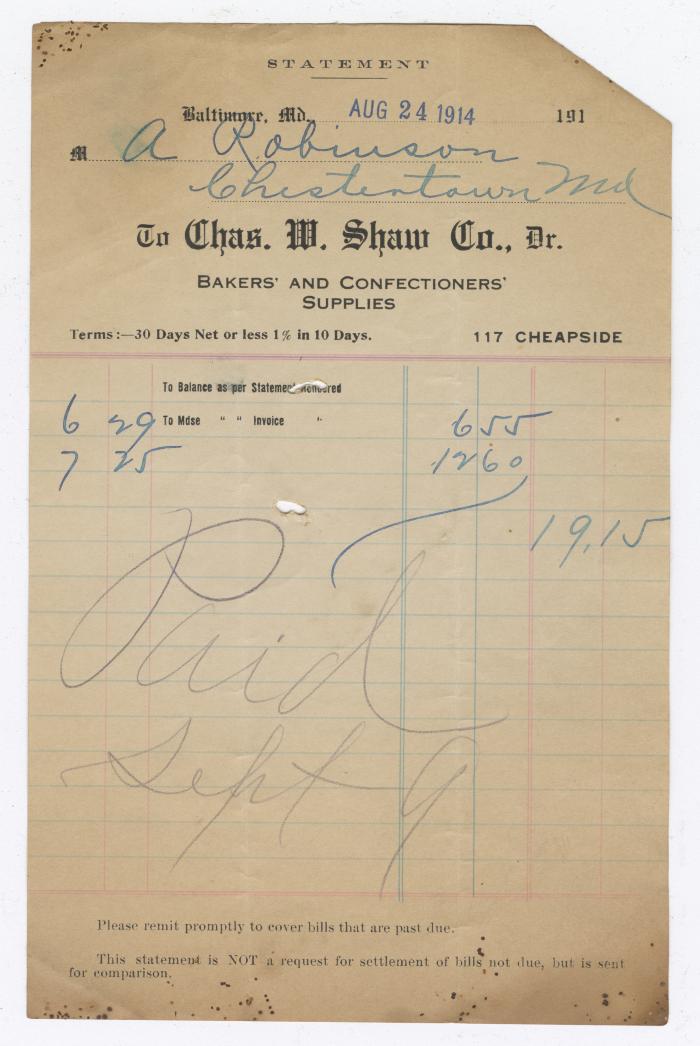 STATEMENT
Baltimore, Md., AUG 24 1914 191
M A Robinson
Chestertown Md
To Chas. W. Shaw Co., Dr.
BAKERS' AND CONFECTIONERS'
SUPPLIES
Terms:—30 Days Net or less 1% in 10 Days. 117 CHEAPSIDE
To Balance as per Statement Rendered
6 29 To Mdse " " Invoice " 6 55
7 25 12 60
19,15
Paid
Sept 9
Please remit promptly to cover bills that are past due.
This statement is NOT a request for settlement of bills not due, but is sent
for comparison.